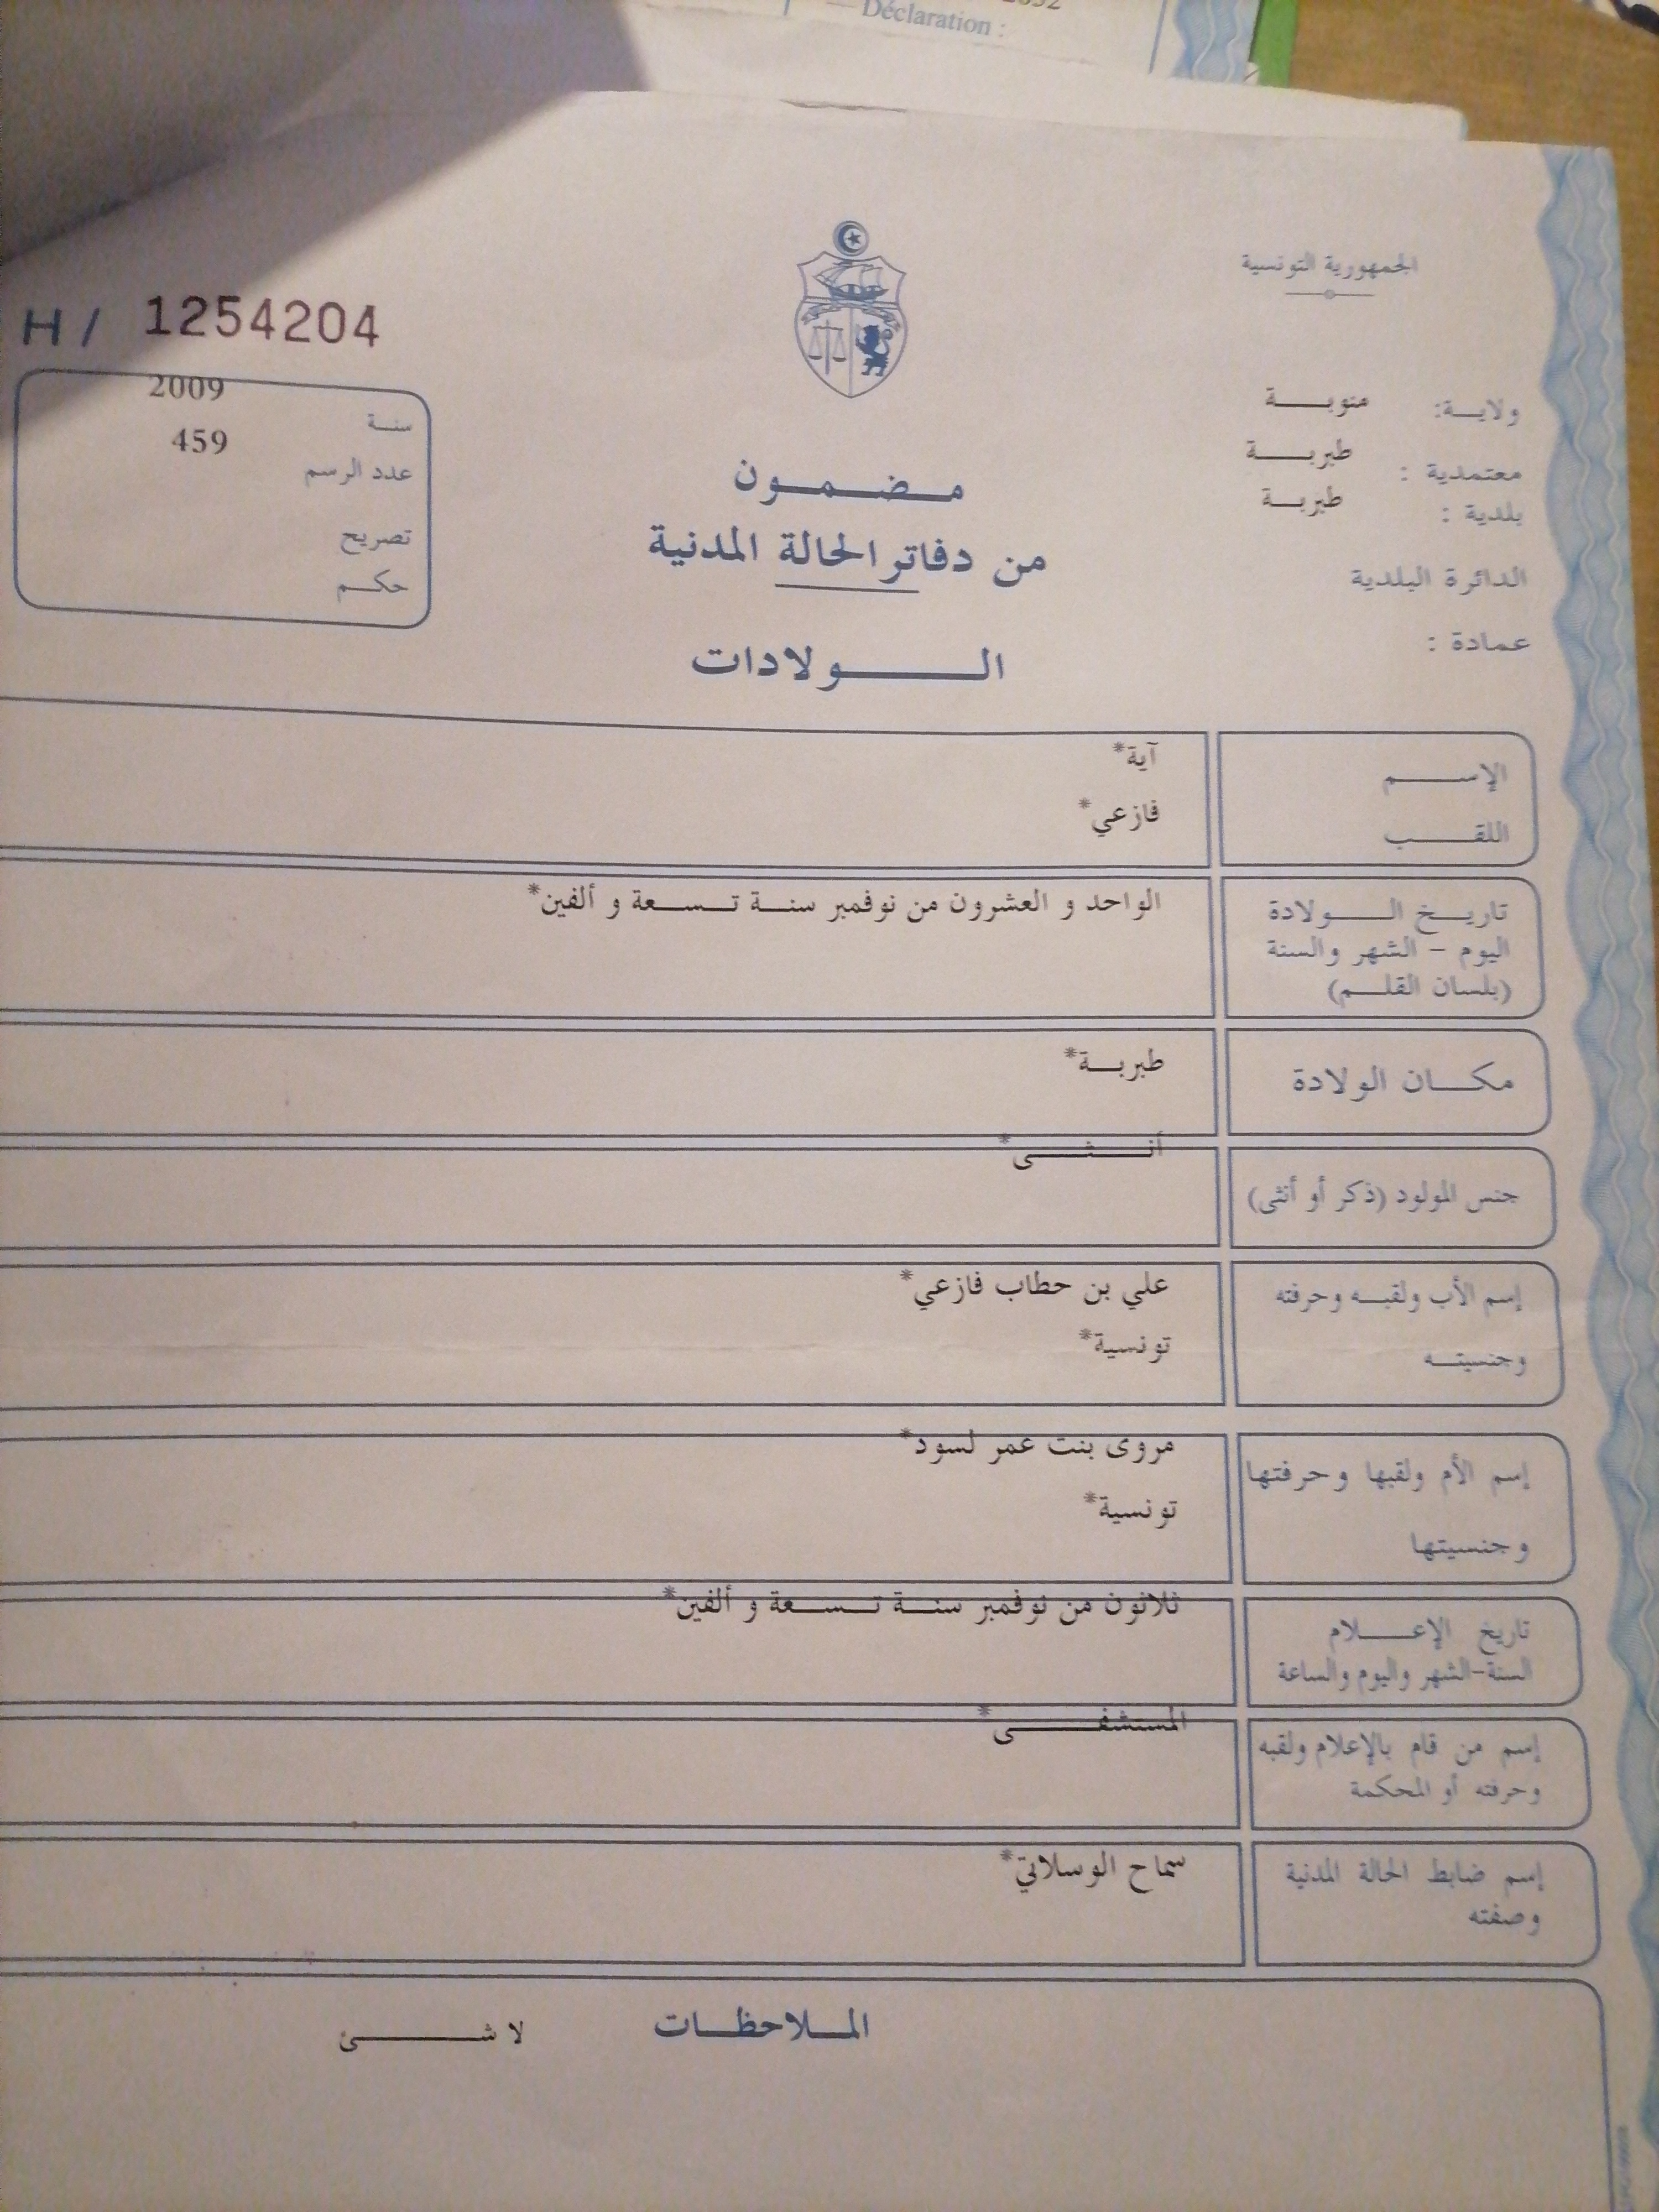 Déclaration :
الجمهورية التونسية
H / 1254204
ولاية: منوبة
معتمدية : طبربة
بلدية : طبربة
الدائرة البلدية
عمادة :
سنة 2009
عدد الرسم 459
تصريح
حكم
مضمون
من دفاتر الحالة المدنية
الولادات
الإسم آية*
اللقب فازعي*
تاريخ الولادة الواحد و العشرون من نوفمبر سنة تسعة و ألفين*
اليوم - الشهر والسنة
(بلسان القلم)
مكان الولادة طبربة*
جنس المولود (ذكر أو أنثى) أنثى*
إسم الأب ولقبه وحرفته علي بن حطاب فازعي*
وجنسيته تونسية*
إسم الأم ولقبها وحرفتها مروى بنت عمر لسود*
وجنسيتها تونسية*
تاريخ الإعلام ثلاثون من نوفمبر سنة تسعة و ألفين*
السنة-الشهر واليوم والساعة
إسم من قام بالإعلام ولقبه المستشفى*
وحرفته أو المحكمة
إسم ضابط الحالة المدنية سماح الوسلاتي*
وصفته
الملاحظات لا شئ